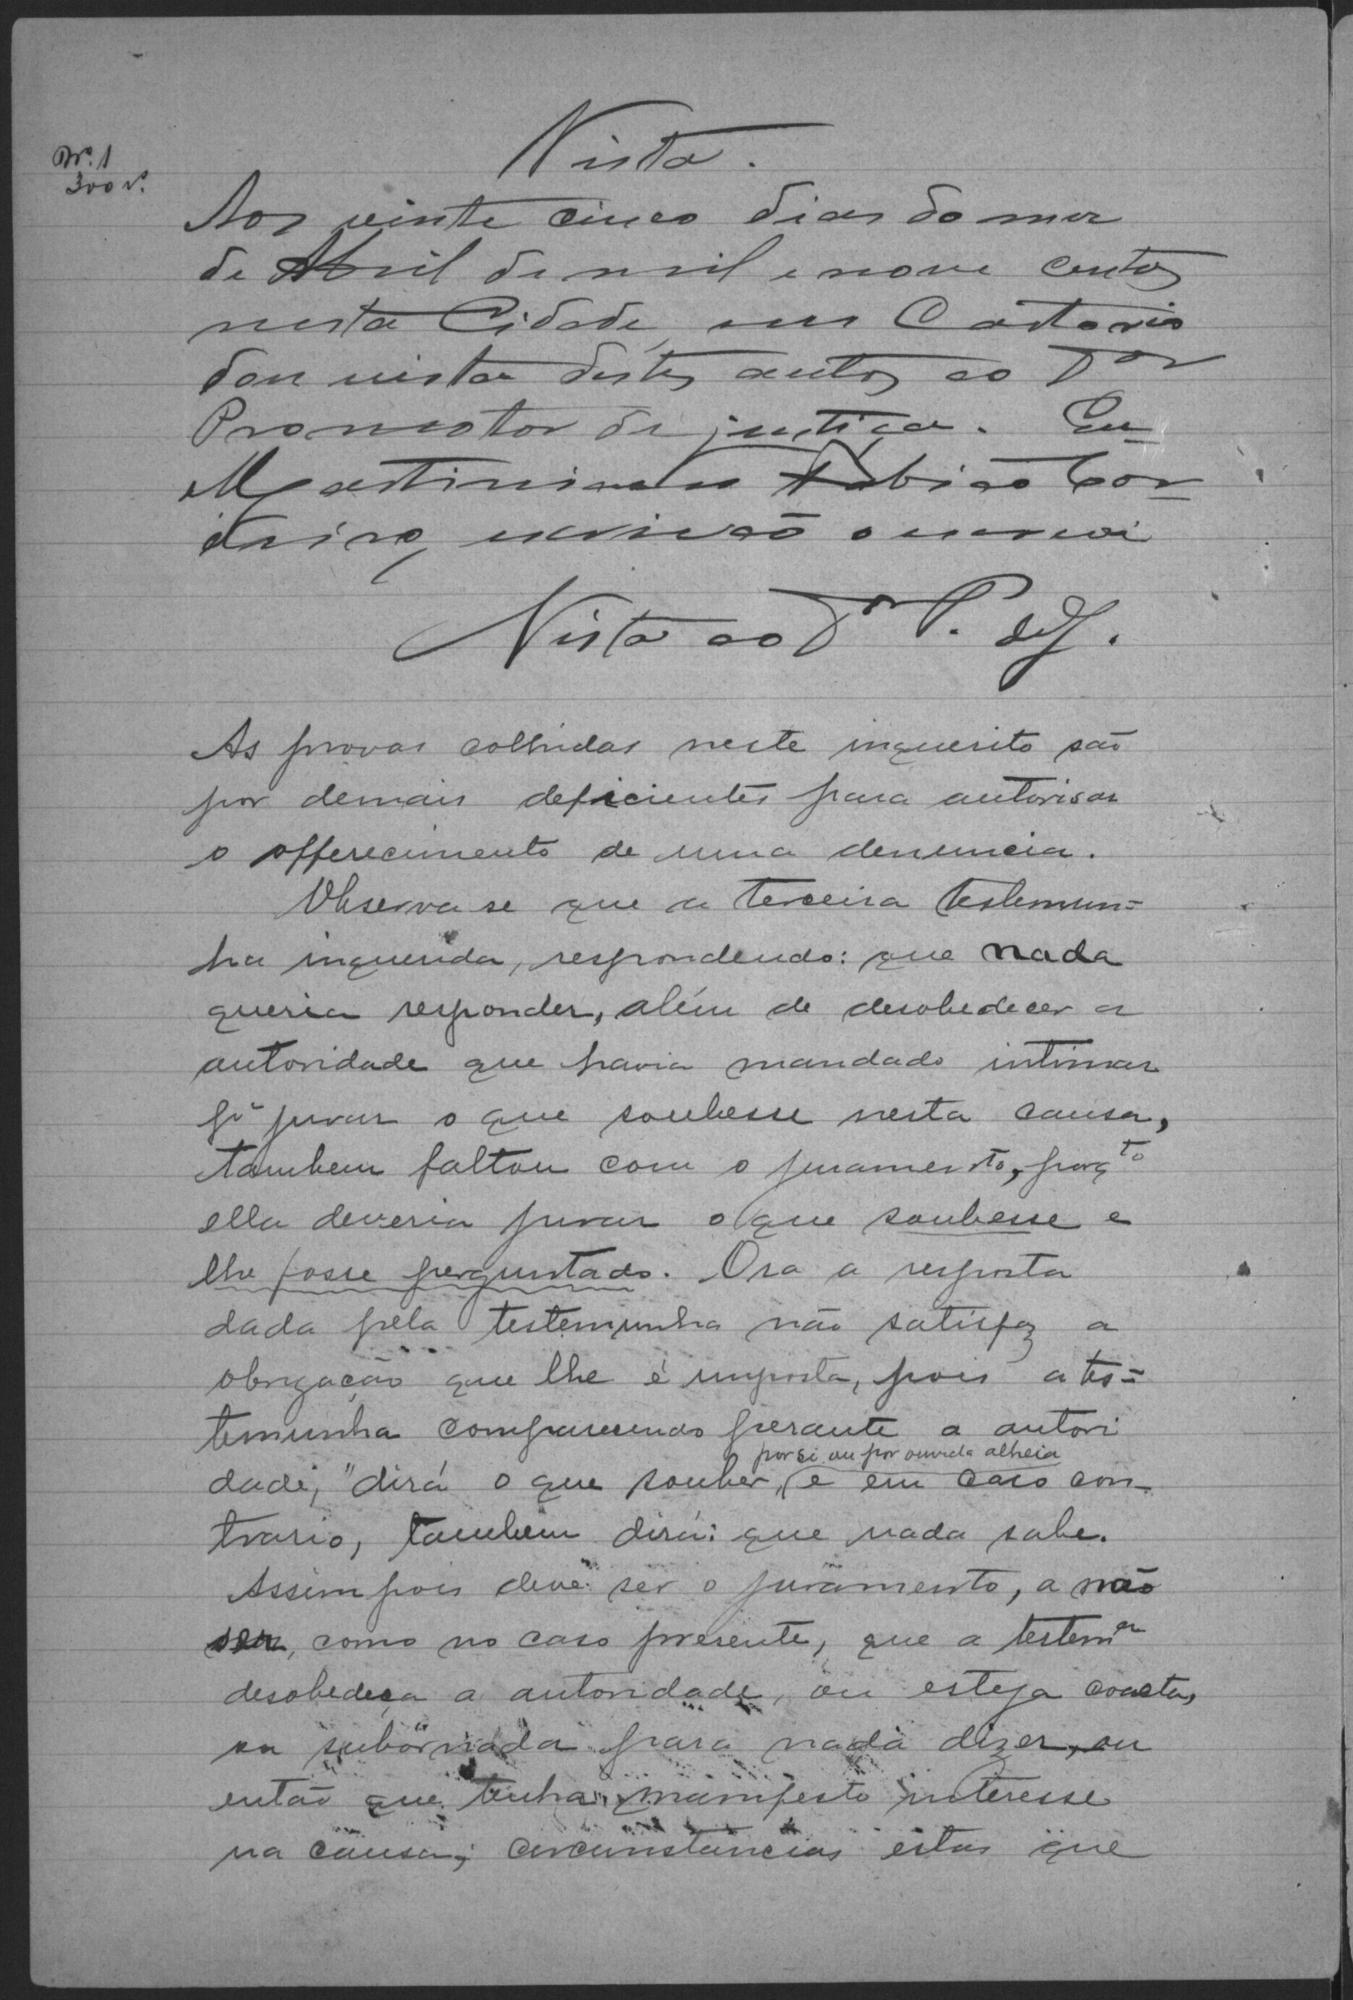 Nº 1
300 rs.
Vista.
Aos vinte cinco dias do mez
de Abril de mil e nove centos
nesta Cidade, em Cartorio
dou vista destes autos ao Dor
Promotor de justiça. Eu
Martiniano Fabião Cor-
deiro, escrivão o escrevi
Vista ao Dr P. de J.
As provas colhidas neste inquerito são
por demais deficientes para autorisar
o offerecimento de uma denuncia.
Observa se que a terceira testemun=
ha inquerida, respondendo: que nada
queria responder, além de desobedecer a
autoridade que havia mandado intimar
pª jurar o que soubesse nesta causa,
tambem faltou com o juramento, porqto
ella deveria jurar o que soubesse e
lhe fosse perguntado. Ora a resposta
dada pela testemunha não satisfaz a
obrigação que lhe é imposta, pois a tes=
temunha comparecendo perante a autori
por si ou por ouvida alheia
dade, "dirá o que souber, e em caso con-
trario, tambem dirá: que nada sabe.
Assim pois deve ser o juramento, a não
ser, como no caso presente, que a testema
desobedeça a autoridade, ou esteja coacta,
ou subornada para nada dizer, ou
então que tenha manifesto interesse
na causa; circunstancias estas que